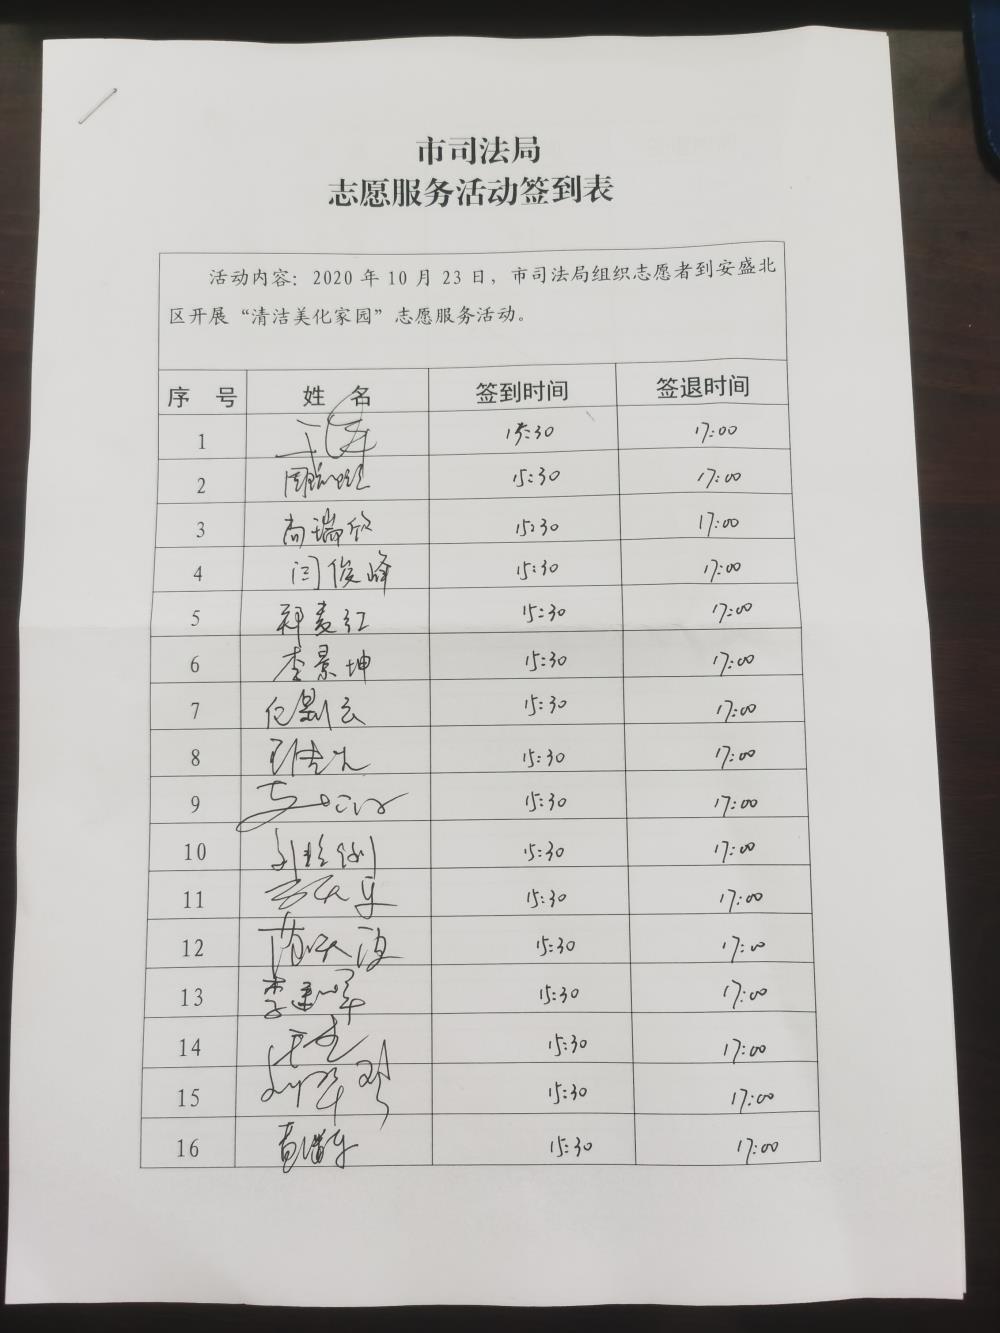 市司法局
志愿服务活动签到表
活动内容：2020年10月23日，市司法局组织志愿者到安盛北
区开展“清洁美化家园”志愿服务活动。
序 号 姓 名 签到时间 签退时间
1 15:30 17:00
2 15:30 17:00
3 尚瑞欣 15:30 17:00
4 闫俊峰 15:30 17:00
5 郑麦红 15:30 17:00
6 李景坤 15:30 17:00
7 15:30 17:00
8 15:30 17:00
9 15:30 17:00
10 15:30 17:00
11 15:30 17:00
12 15:30 17:00
13 李建军 15:30 17:00
14 15:30 17:00
15 15:30 17:00
16 15:30 17:00